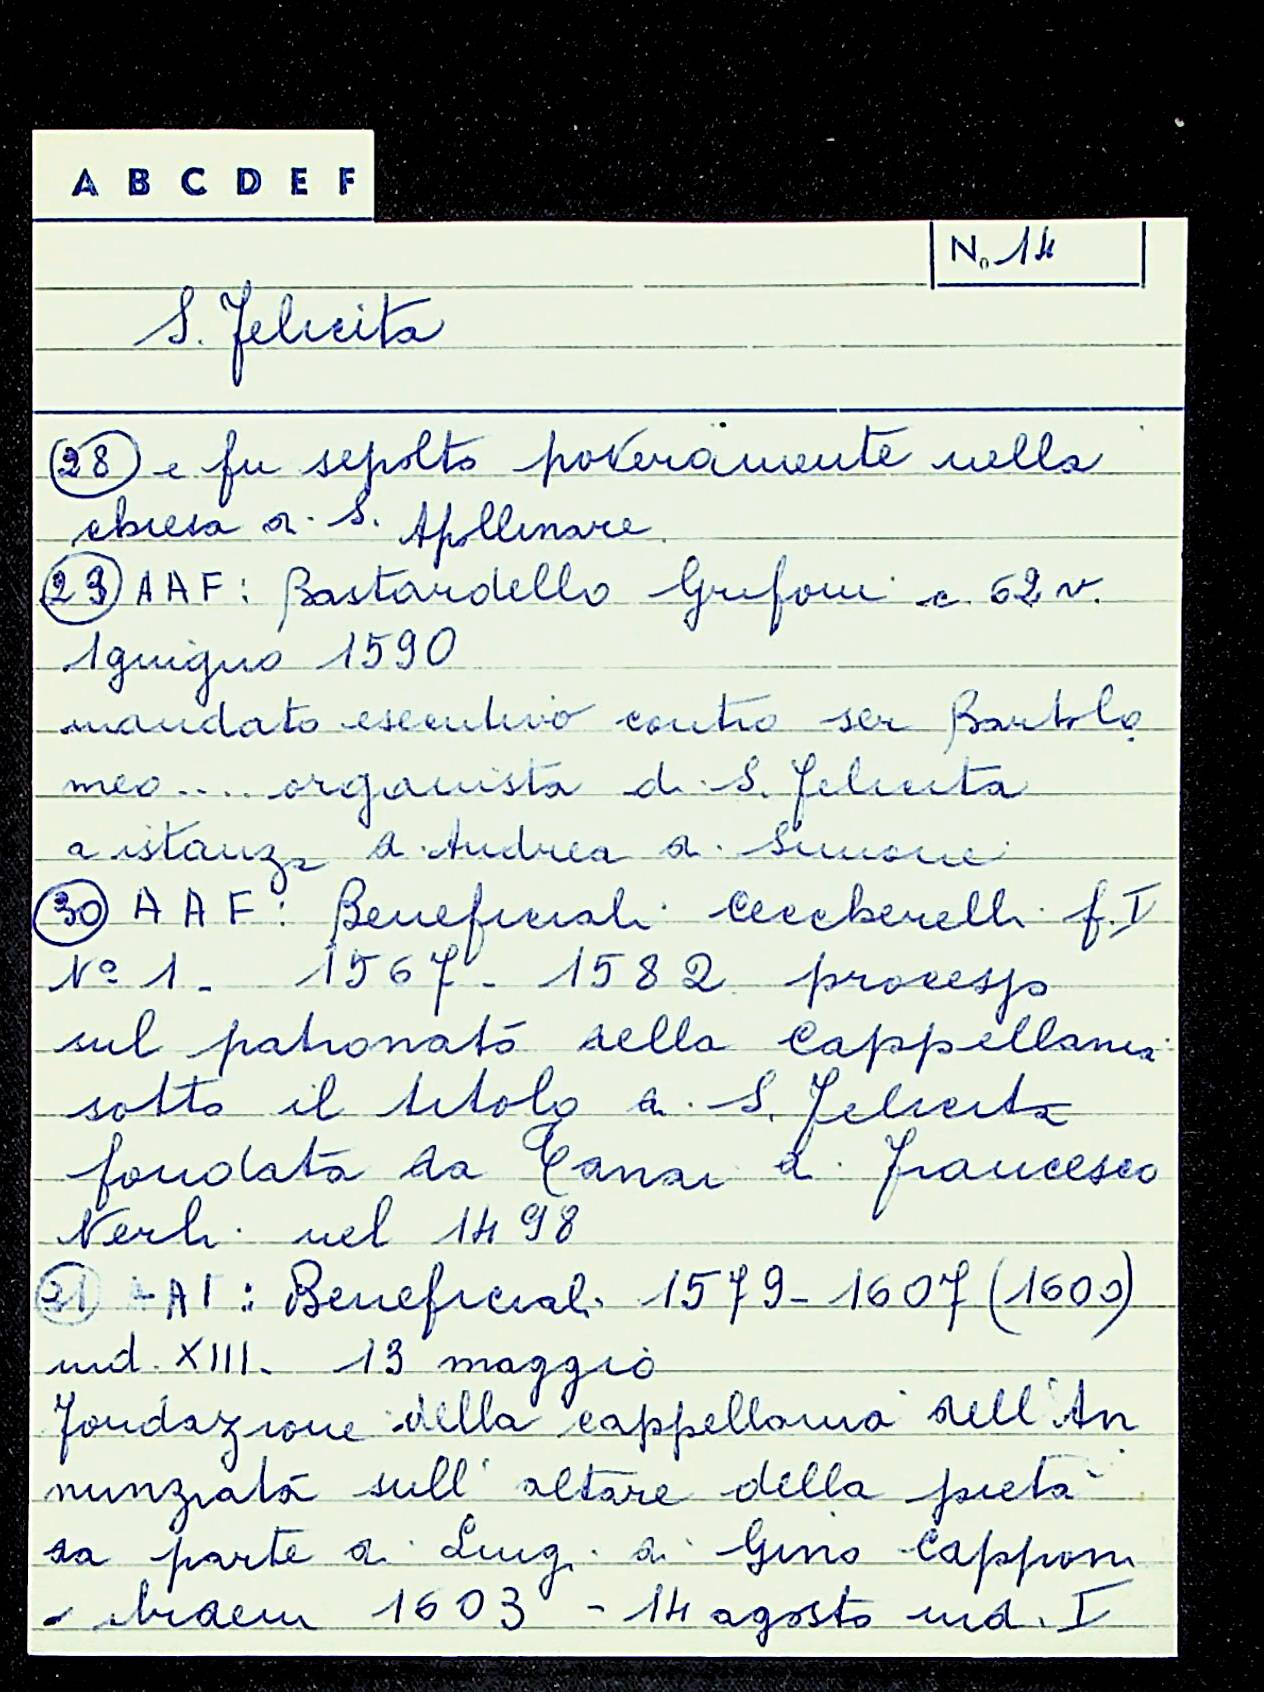 A B C D E F
No 14
S. Felicita
28 e fu sepolto poveramente nella
chiesa di S. Apollinare
29 AAF: Bastardello Grifoni c. 62 v.
1 giugno 1590
mandato esecutivo contro ser Bartolo
meo.... organista di S. Felicita
a istanza di Andrea di Simone
30 AAF: Beneficiali Ceccherelli f. I
Nº 1 - 1567 - 1582 processo
sul patronato della Cappellania
sotto il titolo di S. Felicita
fondata da Tanai di Francesco
Nerli nel 1498
31 AAF: Beneficiali 1579 - 1607 (1600)
ind. XIII - 13 maggio
Fondazione della cappellania dell'An
nunziata sull'altare della pietà
da parte di Luigi di Gino Capponi
- ibidem 1603 - 14 agosto ind. I